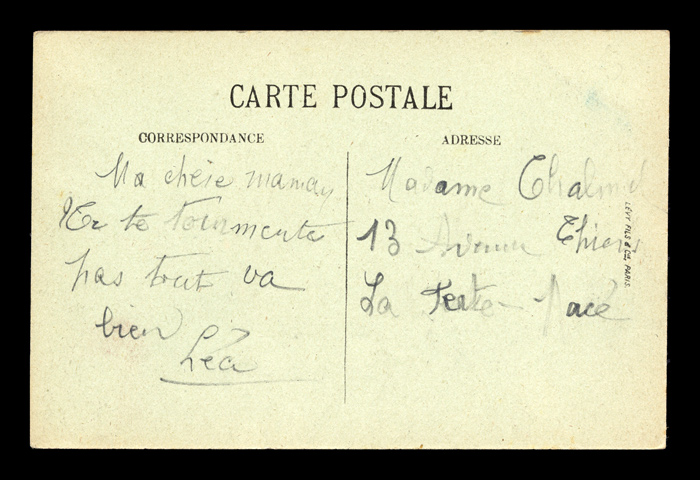 CARTE POSTALE
CORRESPONDANCE
ADRESSE
Ma chère maman
Ne te tourmente
pas tout va
bien
Léa
Madame
13 Avenue Thiers
La Ferté-Macé
LEVY FILS & Cie, PARIS.